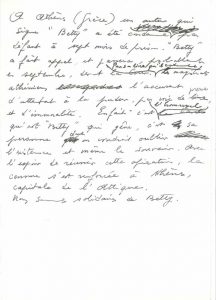 A Athènes (Grèce) un autre qui
signe "Betty" a été condamné par
défaut à sept mois de prison. "Betty"
a fait appel, et passera
en septembre, devant les magistrats
athéniens l'accusant
d'attentat à la pudeur, par voie de
et d'immoralité. Enfaite, c'est
qui est "Betty" qui gêne, c'est sa
personne dont on voudrait oublier
l'existence et même le souvenir. Avec
l'espoir de réussir cette opération, la
censure s'est renforcée à Athènes,
capitale de l'Attique.
Nous sommes solidaires de Betty.